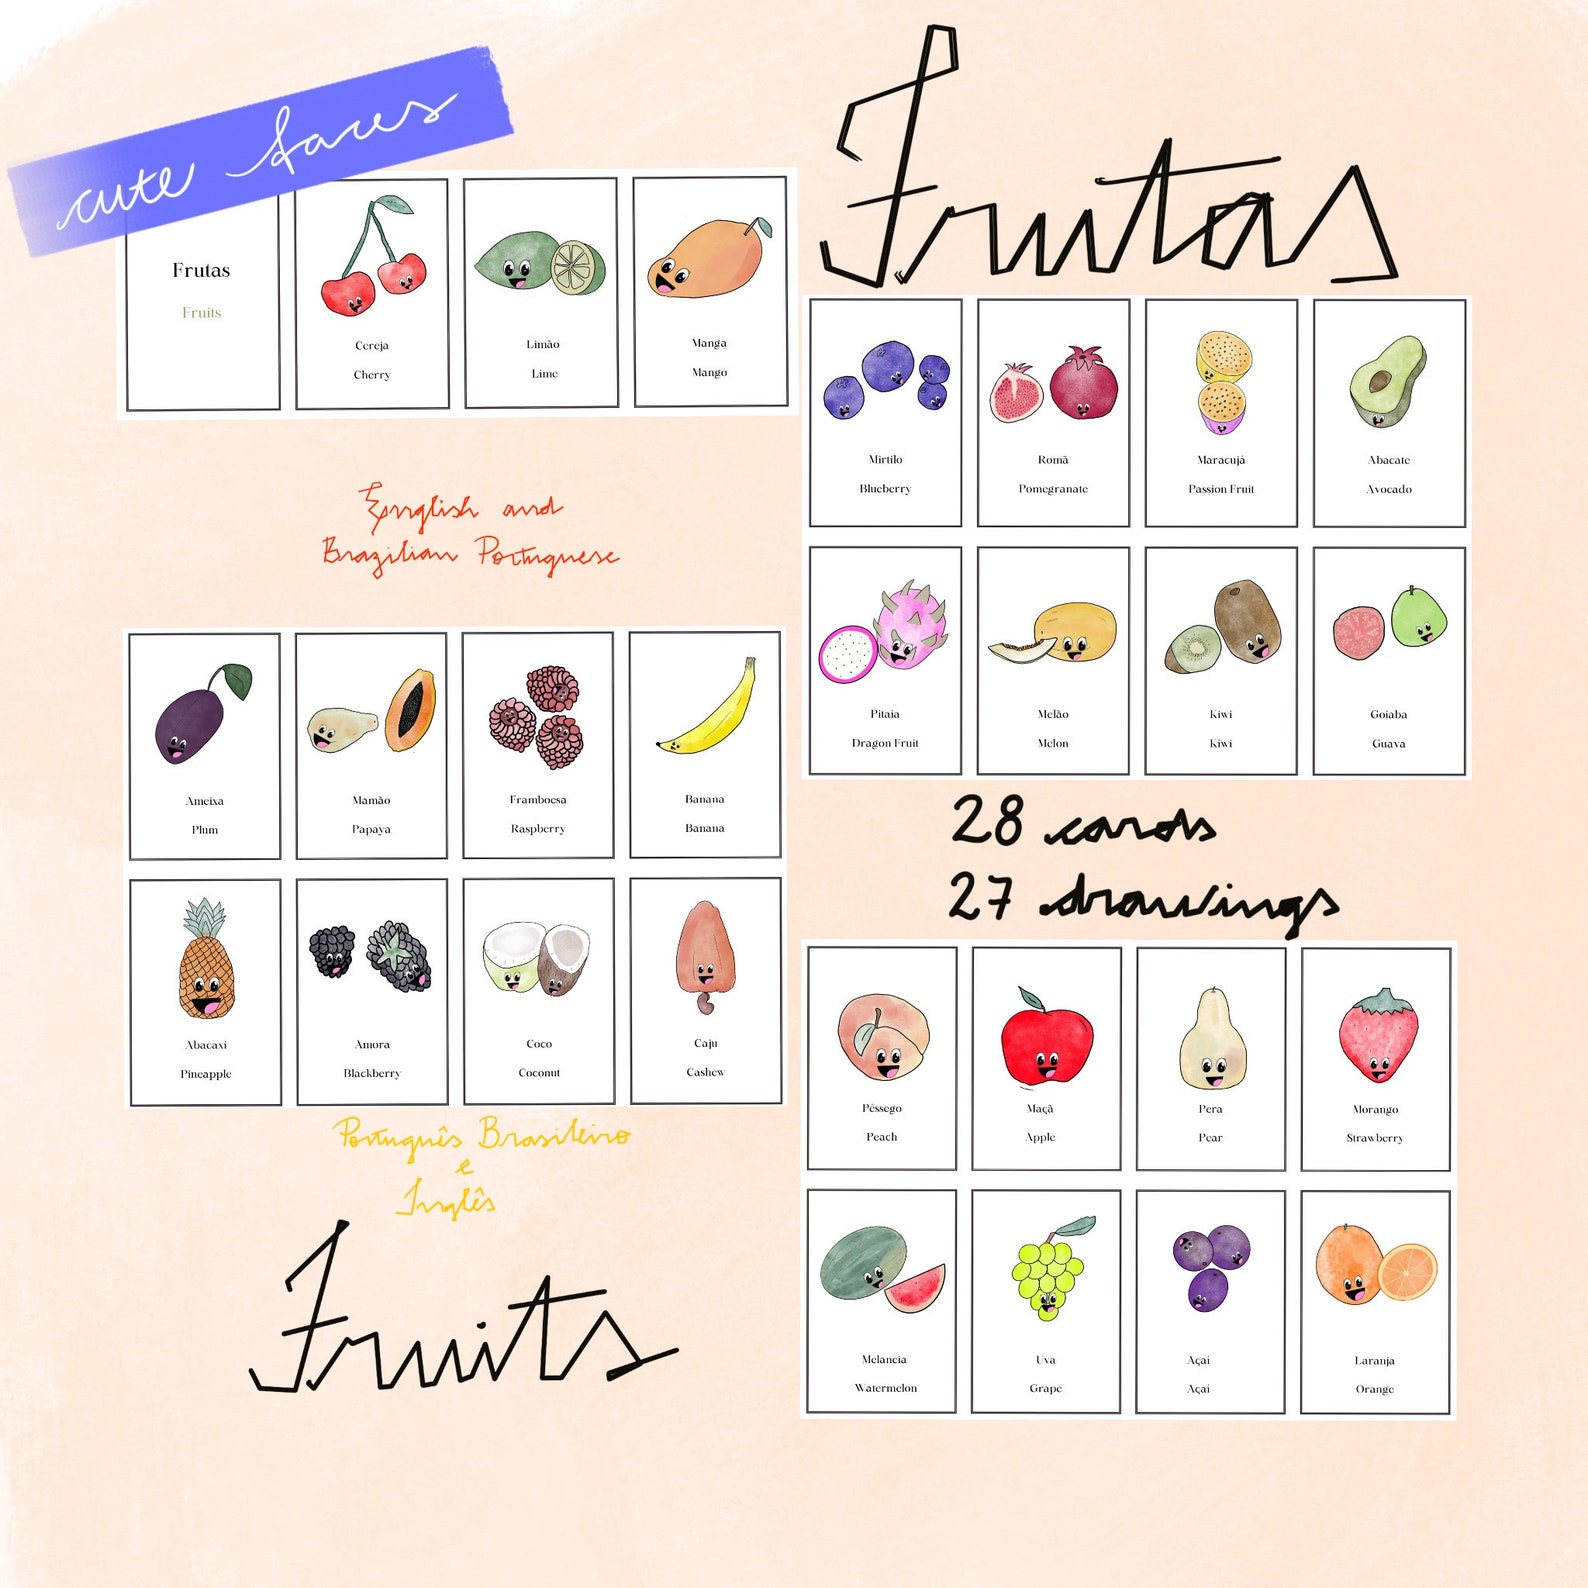 cute faces
Frutas
Frutas
Fruits
Cereja
Cherry
Limão
Lime
Manga
Mango
Mirtilo
Blueberry
Romã
Pomegranate
Maracujá
Passion Fruit
Abacate
Avocado
English and
Brazilian Portuguese
Pitaia
Dragon Fruit
Melão
Melon
Kiwi
Kiwi
Goiaba
Guava
Ameixa
Plum
Mamão
Papaya
Framboesa
Raspberry
Banana
Banana
28 cards
27 drawings
Abacaxi
Pineapple
Amora
Blackberry
Coco
Coconut
Caju
Cashew
Pêssego
Peach
Maçã
Apple
Pera
Pear
Morango
Strawberry
Português Brasileiro
e
Inglês
Fruits
Melancia
Watermelon
Uva
Grape
Açaí
Açaí
Laranja
Orange